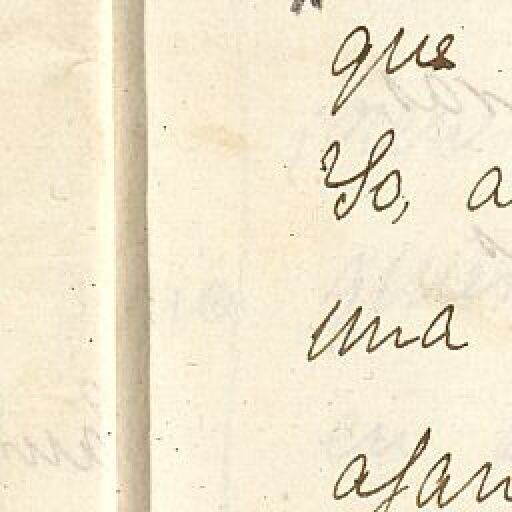 que
Yo, a
una
afan